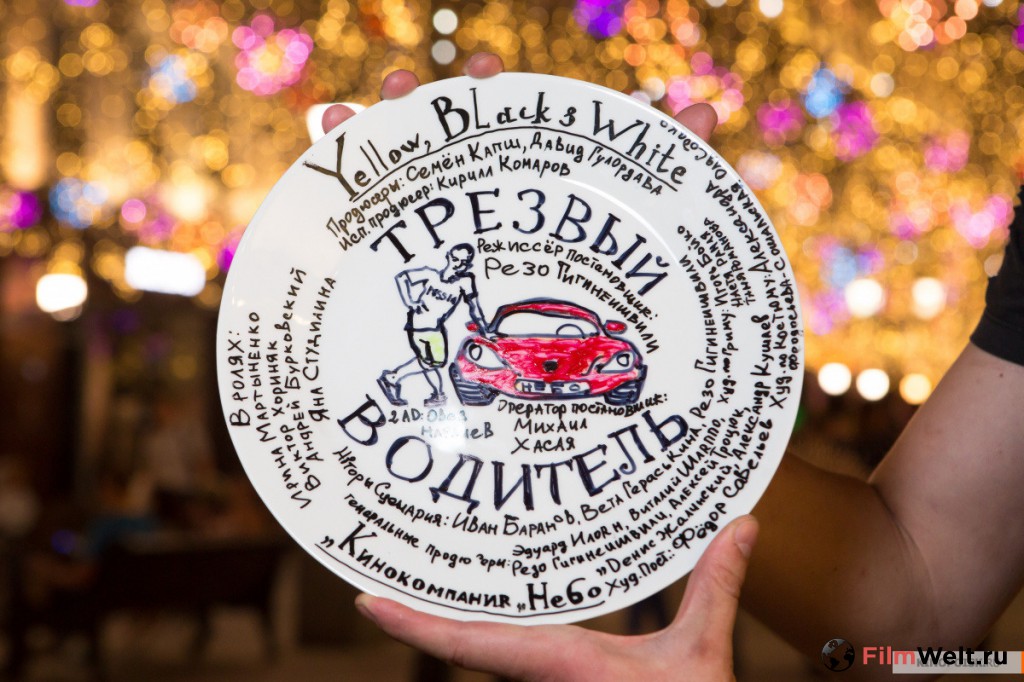 Yellow, Black & White
Продюсеры: Семён Капш, Давид Гулордава
Исп. продюсер: Кирилл Комаров
ТРЕЗВЫЙ
Режиссёр постановщик:
Резо Гигинеишвили
RUSSIA
НЕБО
2AD: Овез
Оператор постановщик:
Михаил
Хасая
ВОДИТЕЛЬ
В ролях:
Ирина Мартыненко
Виктор Хориняк
Андрей Бурковский
Яна Студилина
Авторы Сценария: Иван Баранов, Вета Гераськина, Резо Гигинеишвили
Генеральные продюсеры: Резо Гигинеишвили, Алексей Троцюк,
Эдуард Илоян, Виталий Шляппо,
Денис Жалинский, Александр Кушаев
Худ. Пост.: Фёдор Савельев
Худ. по гриму: Игорь
Худ. по Костюму: Александра
„Кинокомпания „Небо”
FilmWelt.ru